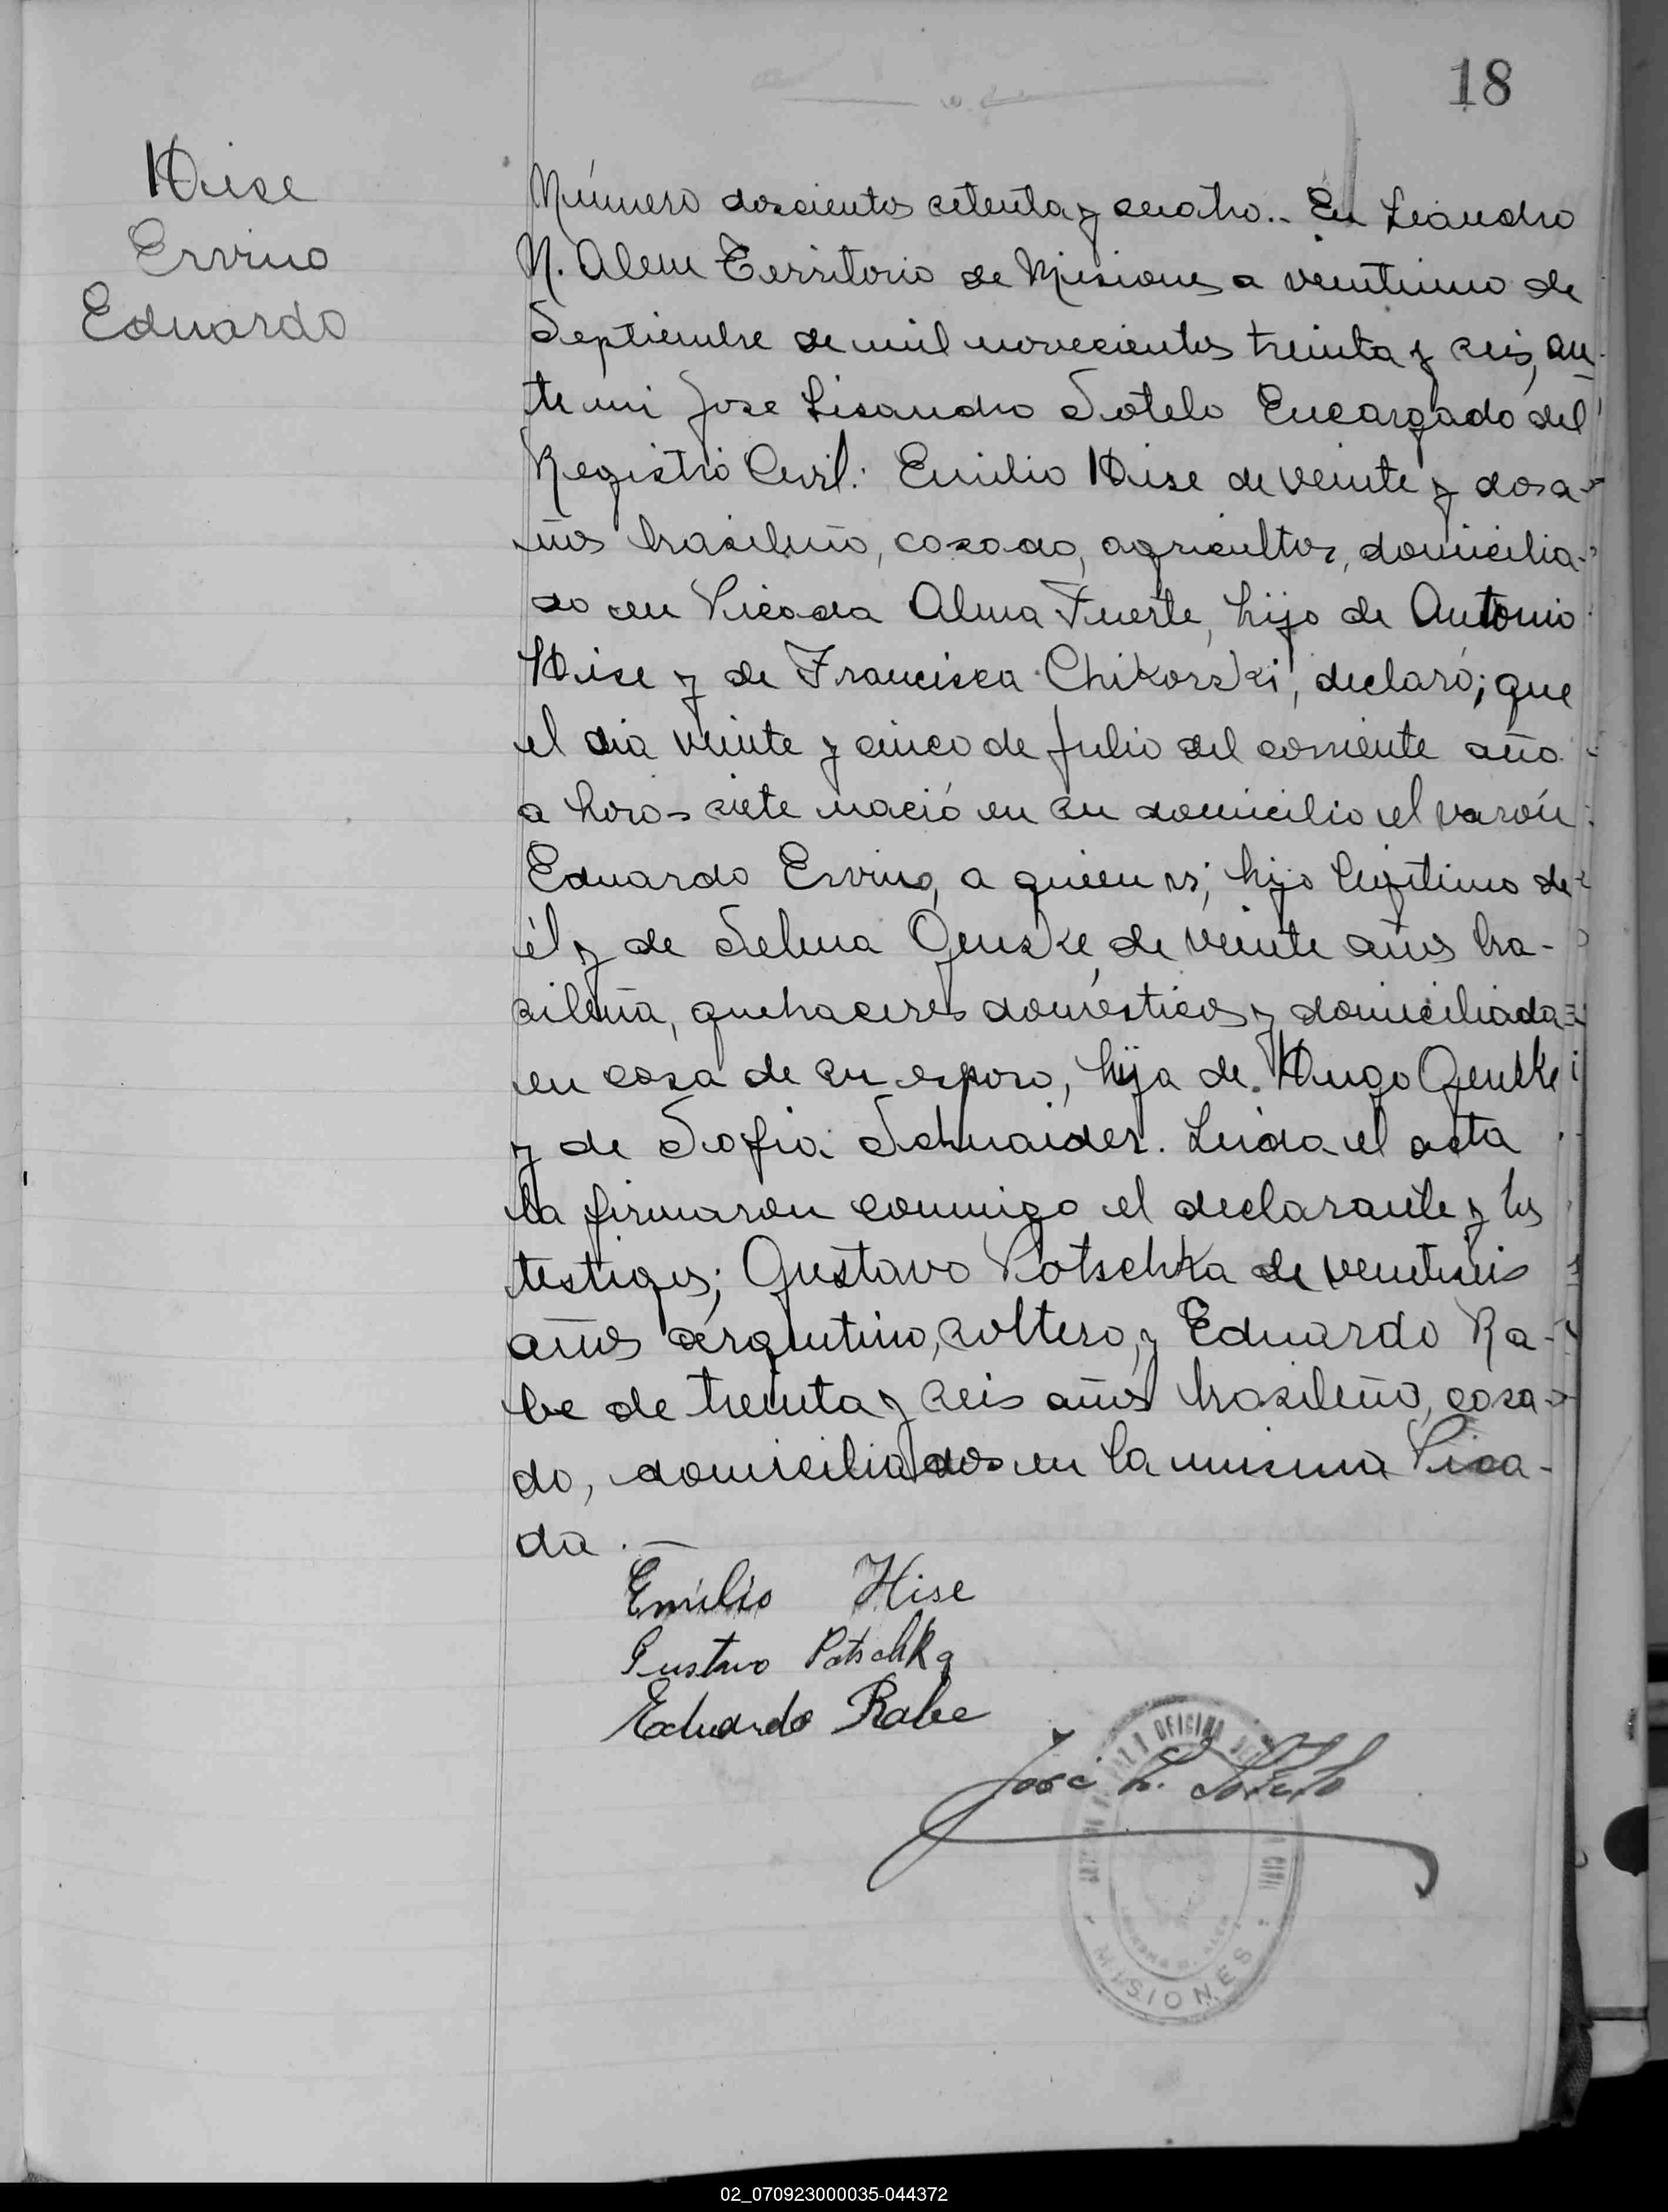 18
Hise
Ervino
Eduardo
Número doscientos setenta y cuatro.. En Leandro
N. Alem Territorio de Misiones a veintiuno de
Septiembre de mil novecientos treinta y seis, an-
te mi Jose Lisandro Sotelo Encargado del
Registro Civil: Emilio Hise de veinte y dos a-
ños brasileño, casado, agricultor, domicilia-
do en Picada Alma Fuerte, hijo de Antonio
Hise y de Francisca Chikorski, declaró; que
el dia veinte y cinco de Julio del corriente año
a horas siete nació en su domicilio el varón
Eduardo Ervino, a quien vi; hijo legitimo de
él y de Selma Genske, de veinte años bra-
sileña, quehaceres domésticos y domiciliada
en casa de su esposo, hija de Hugo Genske
y de Sofia Schnaider. Leida el acta
la firmaron conmigo el declarante y los
testigos; Gustavo Potschka de veintiseis
años argentino, soltero, y Eduardo Ra-
be de treinta y seis años brasileño, casa-
do, domiciliados en la misma Pica-
da.—
Emilio Hise
Gustavo Potschka
Eduardo Rabe
José L. Sotelo
OFICINA
CIVIL
MISIONES
02_070923000035-044372